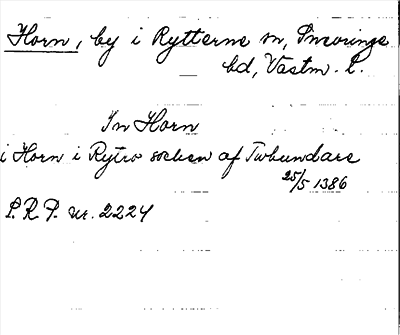 Horn, by i Rytterne sn, Snevringe
bd, Västm. l.
In Horn
i Horn i Rytro socken af Twhundare
25/5 1386
P.R.P. nr. 2224